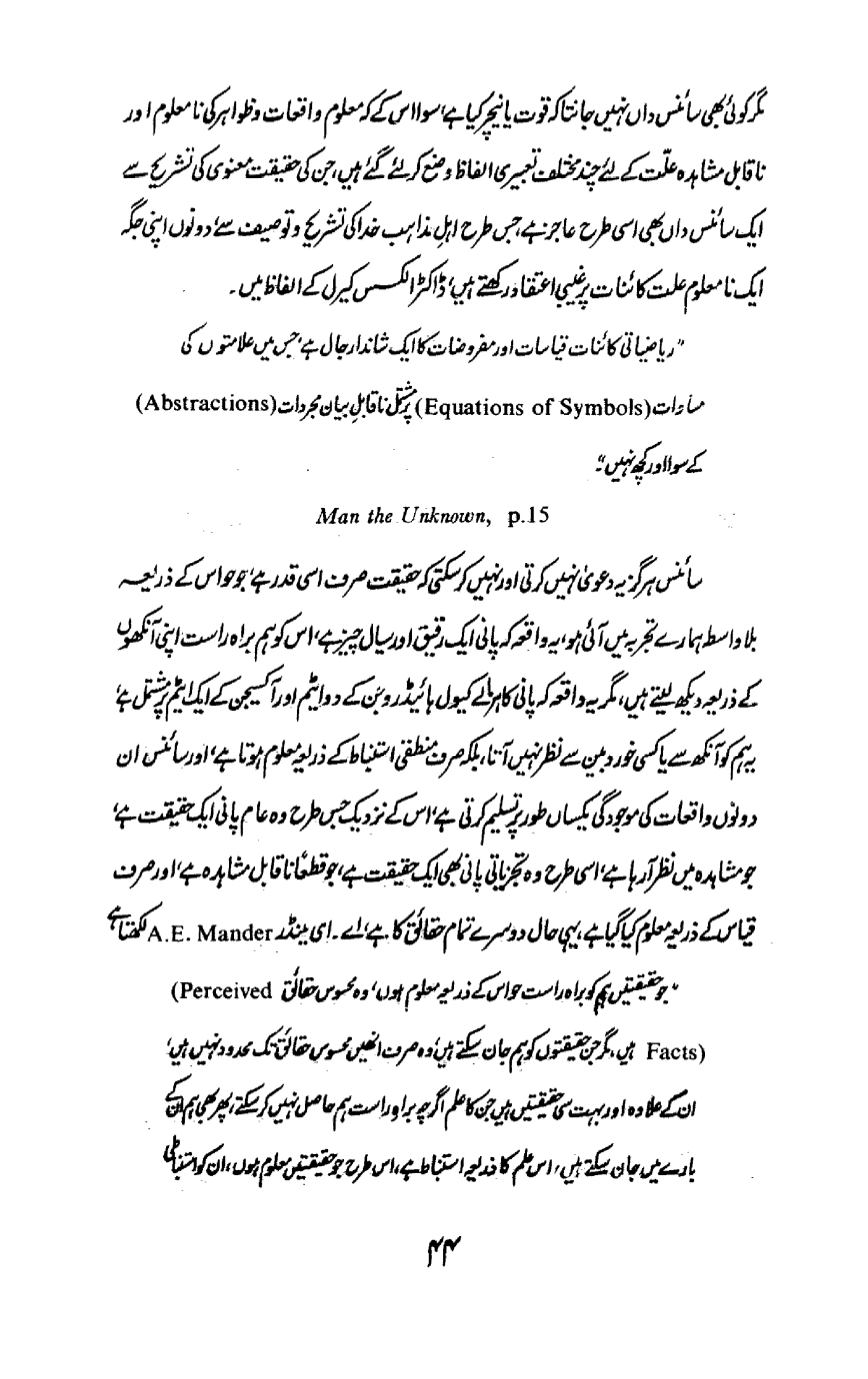 مگر کوئی بھی سائنس داں نہیں جانتا کہ قوت یا نیچر کیا ہے، سوا اس کے کہ معلوم واقعات و ظواہر کی نامعلوم اور
ناقابل مشاہدہ علّت کے لئے چند مختلف تعبیری الفاظ وضع کر لئے گئے ہیں، جن کی حقیقت معنوی کی تشریح سے
ایک سائنس داں بھی اسی طرح عاجز ہے، جس طرح اہل مذاہب خدا کی تشریح و توصیف سے، دونوں اپنی جگہ
ایک نامعلوم علت کائنات پر غیبی اعتقاد رکھتے ہیں، ڈاکٹر الکسس کیرل کے الفاظ میں۔
"ریاضیاتی کائنات قیاسات اور مفروضات کا ایک شاندار جال ہے، جس میں علامتوں کی
مساوات (Equations of Symbols) پر مشتمل ناقابل بیان مجردات (Abstractions)
کے سوا اور کچھ نہیں"۔
Man the Unknown, p.15
سائنس ہرگز یہ دعویٰ نہیں کرتی اور نہیں کر سکتی کہ حقیقت صرف اسی قدر ہے، جو حواس کے ذریعہ
بلا واسطہ ہمارے تجربہ میں آئی ہو، یہ واقعہ کہ پانی ایک رقیق اور سیال چیز ہے، اس کو ہم براہ راست اپنی آنکھوں
کے ذریعہ دیکھ لیتے ہیں، مگر یہ واقعہ کہ پانی کا ہر مالے کیول ہائیڈروجن کے دو ایٹم اور آکسیجن کے ایک ایٹم پر مشتمل ہے،
یہ ہم کو آنکھ سے یا کسی خوردبین سے نظر نہیں آتا، بلکہ صرف منطقی استنباط کے ذریعہ معلوم ہوتا ہے، اور سائنس ان
دونوں واقعات کی موجودگی یکساں طور پر تسلیم کرتی ہے، اس کے نزدیک جس طرح وہ عام پانی ایک حقیقت ہے،
جو مشاہدہ میں نظر آ رہا ہے، اسی طرح وہ تجزیاتی پانی بھی ایک حقیقت ہے، جو قطعاً ناقابل مشاہدہ ہے، اور صرف
قیاس کے ذریعہ معلوم کیا گیا ہے، یہی حال دوسرے تمام حقائق کا ہے، اے۔ ای مینڈر A.E. Mander لکھتا ہے
"جو حقیقتیں ہم کو براہ راست حواس کے ذریعہ معلوم ہوں، وہ محسوس حقائق (Perceived
Facts) ہیں، مگر جن حقیقتوں کو ہم جان سکتے ہیں، وہ صرف انھیں محسوس حقائق تک محدود نہیں ہیں،
ان کے علاوہ اور بہت سی حقیقتیں ہیں جن کا علم اگرچہ براہ راست ہم حاصل نہیں کر سکتے، پھر بھی ہم ان کے
بارے میں جان سکتے ہیں، اس علم کا ذریعہ استنباط ہے، اس طرح جو حقیقتیں معلوم ہوں، ان کو استنباطی
۴۴